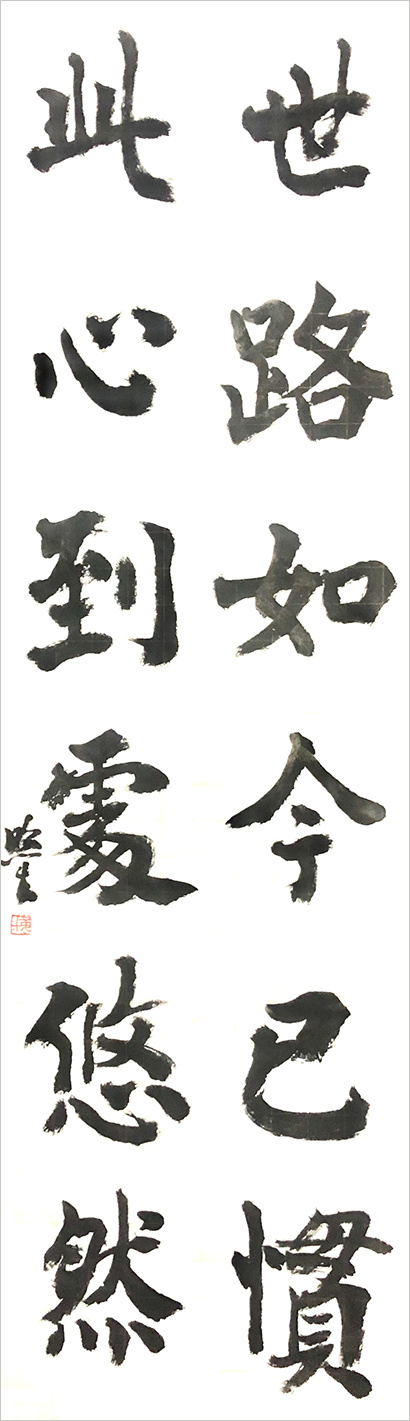 世路如今已慣
此心到處悠然